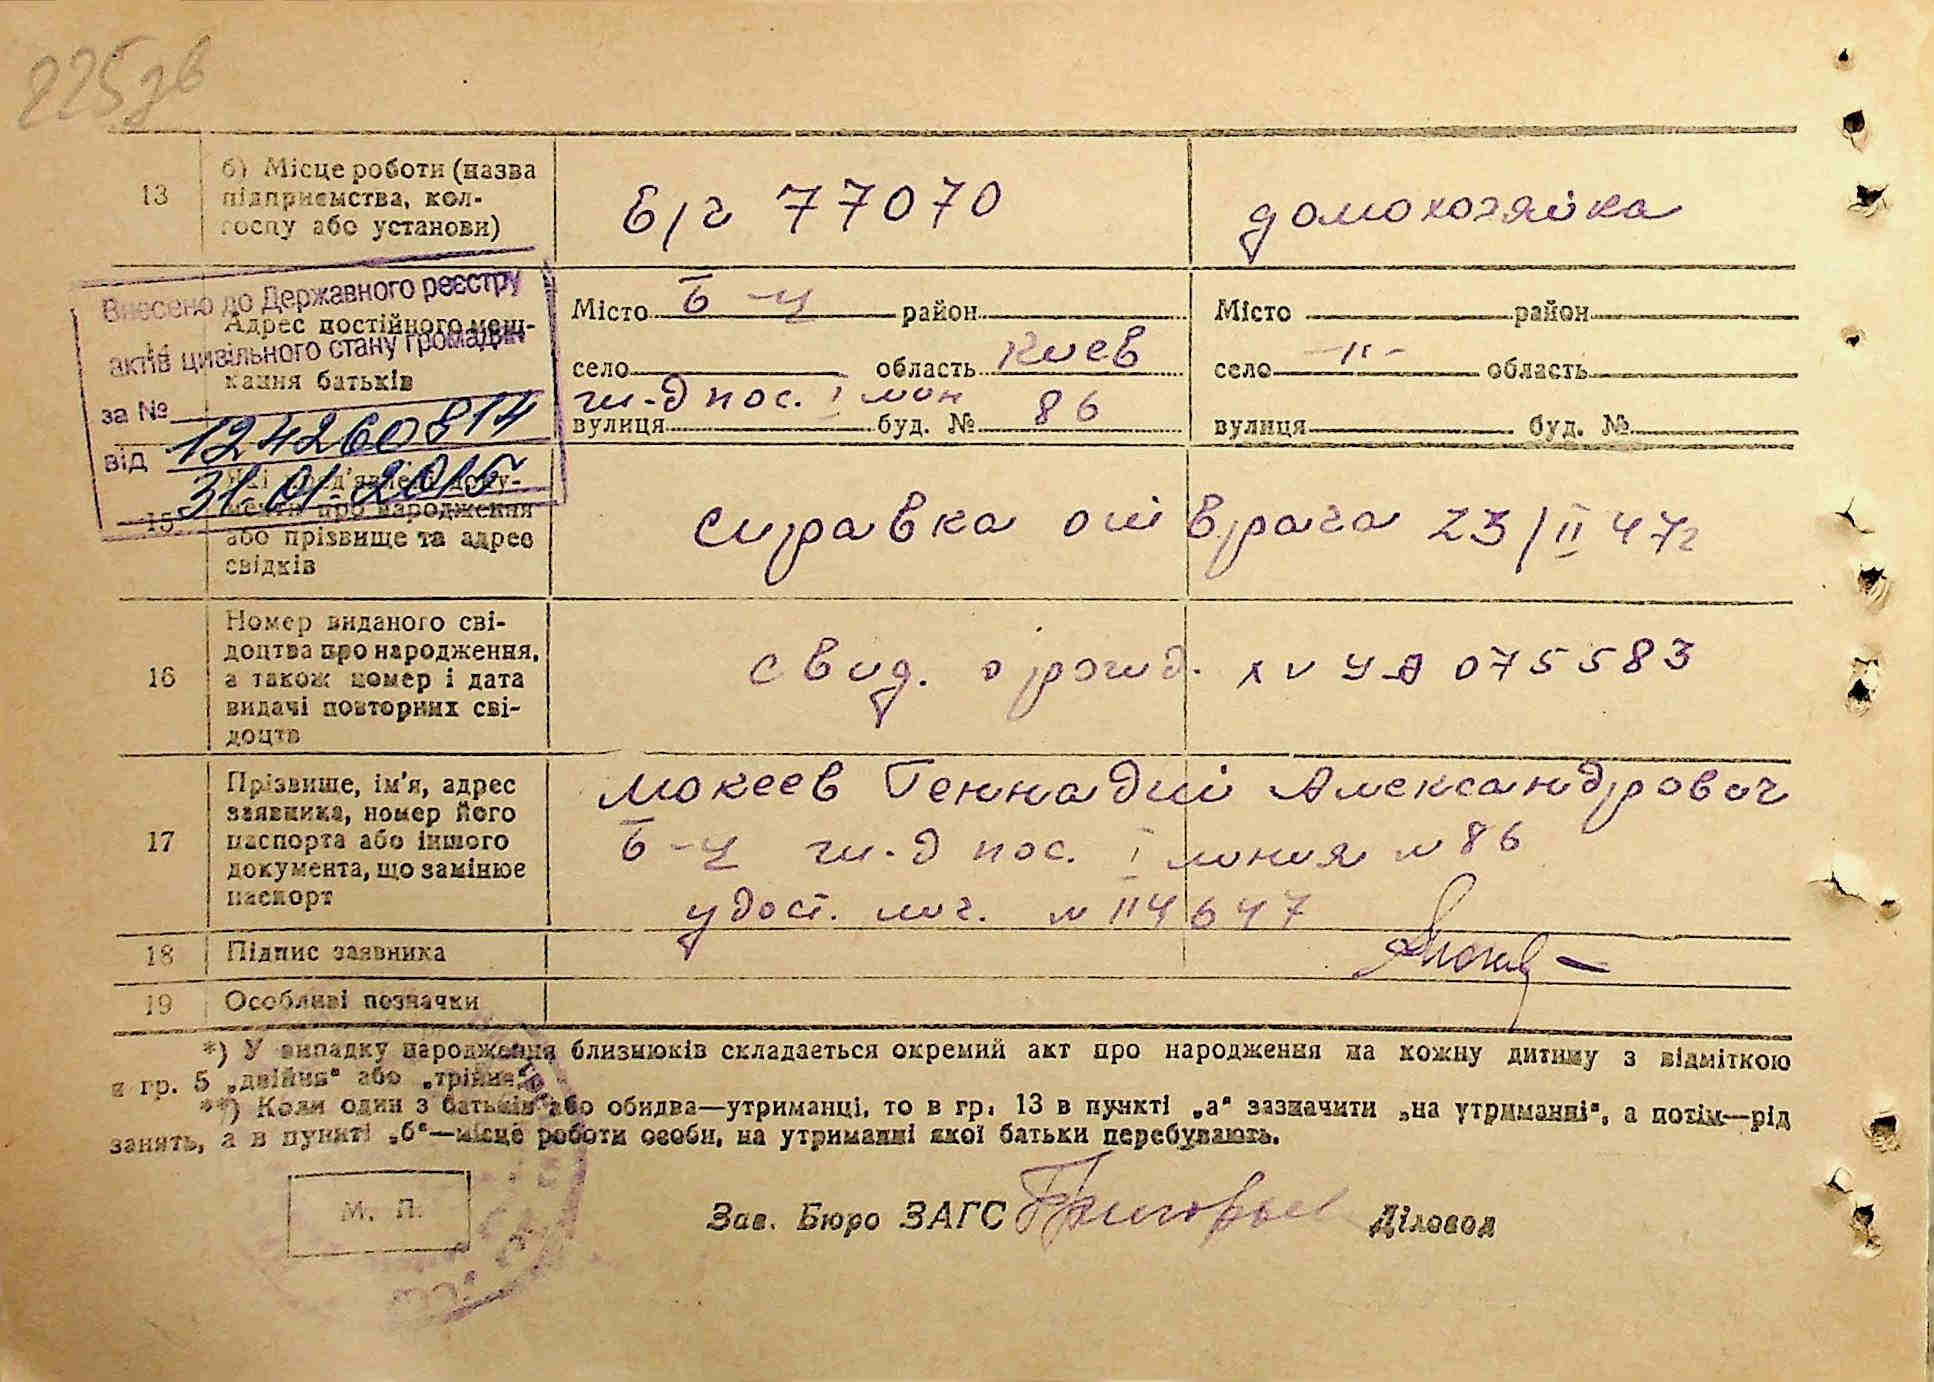 225зв
13
б) Місце роботи (назва
підприємства, кол-
госпу або установи)
в/ч 77070
домохозяйка
Внесено до Державного реєстру
актів цивільного стану громадян
за № 124260814
від 31.01.2015
Адрес постійного меш-
кання батьків
Місто Б-Ц район
село область Киев
ж-д пос. I лин 86
вулиця буд. №
Місто район
село -"- область
вулиця буд. №
15
Які пред'явлені доку-
менти про народження
або прізвище та адрес
свідків
справка от врача 23/II 47г
16
Номер виданого сві-
доцтва про народження,
а також номер і дата
видачі повторних сві-
доцтв
свид. о рожд. XV УЯ 075583
17
Прізвище, ім'я, адрес
заявника, номер його
паспорта або іншого
документа, що замінює
паспорт
Мокеев Геннадий Александрович
Б-Ц ж-д пос. I линия № 86
удост. лич. №
18
Підпис заявника
19
Особливі позначки
*) У випадку народження близнюків складається окремий акт про народження на кожну дитину з відміткою
в гр. 5 „двійня“ або „трійня“.
**) Коли один з батьків або обидва—утриманці, то в гр. 13 в пункті „а“ зазначити „на утриманні“, а потім—рід
занять, а в пункті „б“—місце роботи особи, на утриманні якої батьки перебувають.
М. П.
Зав. Бюро ЗАГС Діловод